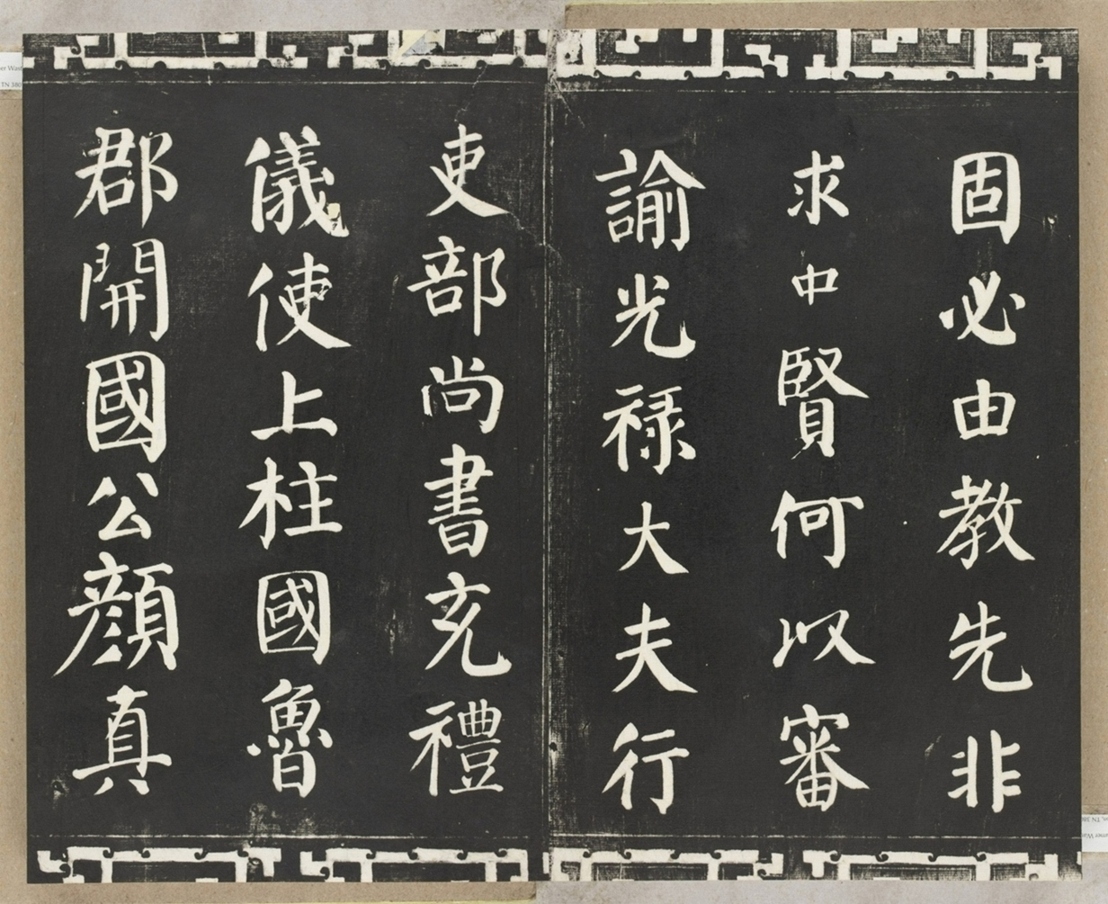 固必由教先非
求中賢何以審
諭光禄大夫行
吏部尚書充禮
儀使上柱國魯
郡開國公顔真